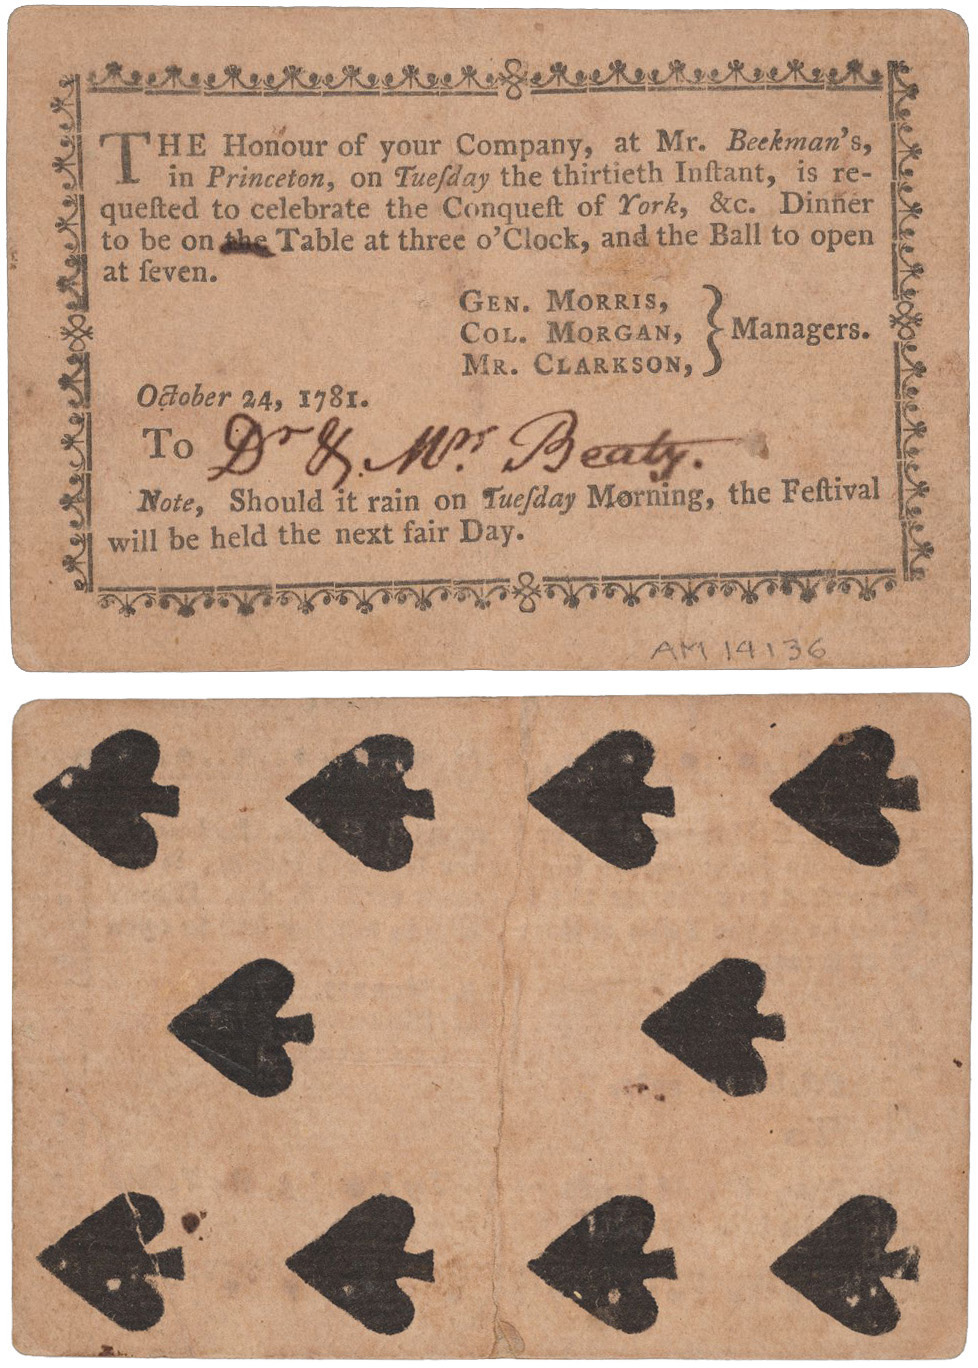 THE Honour of your Company, at Mr. Beekman's,
in Princeton, on Tueſday the thirtieth Inſtant, is re-
queſted to celebrate the Conqueſt of York, &c. Dinner
to be on the Table at three o'Clock, and the Ball to open
at ſeven.
GEN. MORRIS,
COL. MORGAN, } Managers.
MR. CLARKSON,
October 24, 1781.
To Dr & Mrs Beaty.
Note, Should it rain on Tueſday Morning, the Feſtival
will be held the next fair Day.
AM 14136